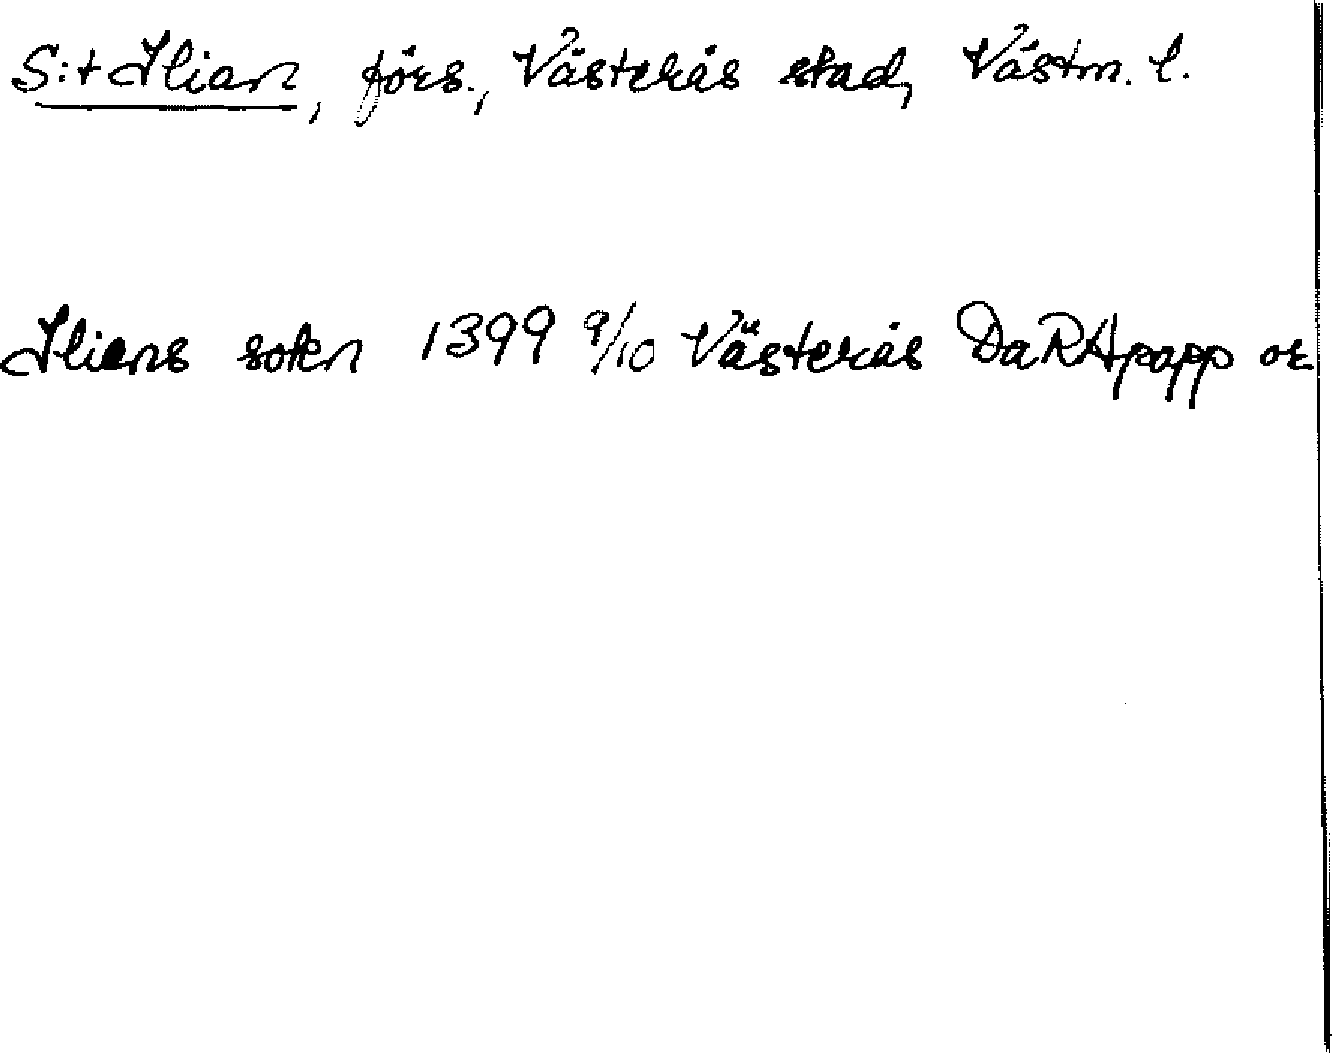 S:t Ilian, förs., Västerås stad, Västm. l.
Ilians sokn 1399 9/10 Västerås DaRApapp or